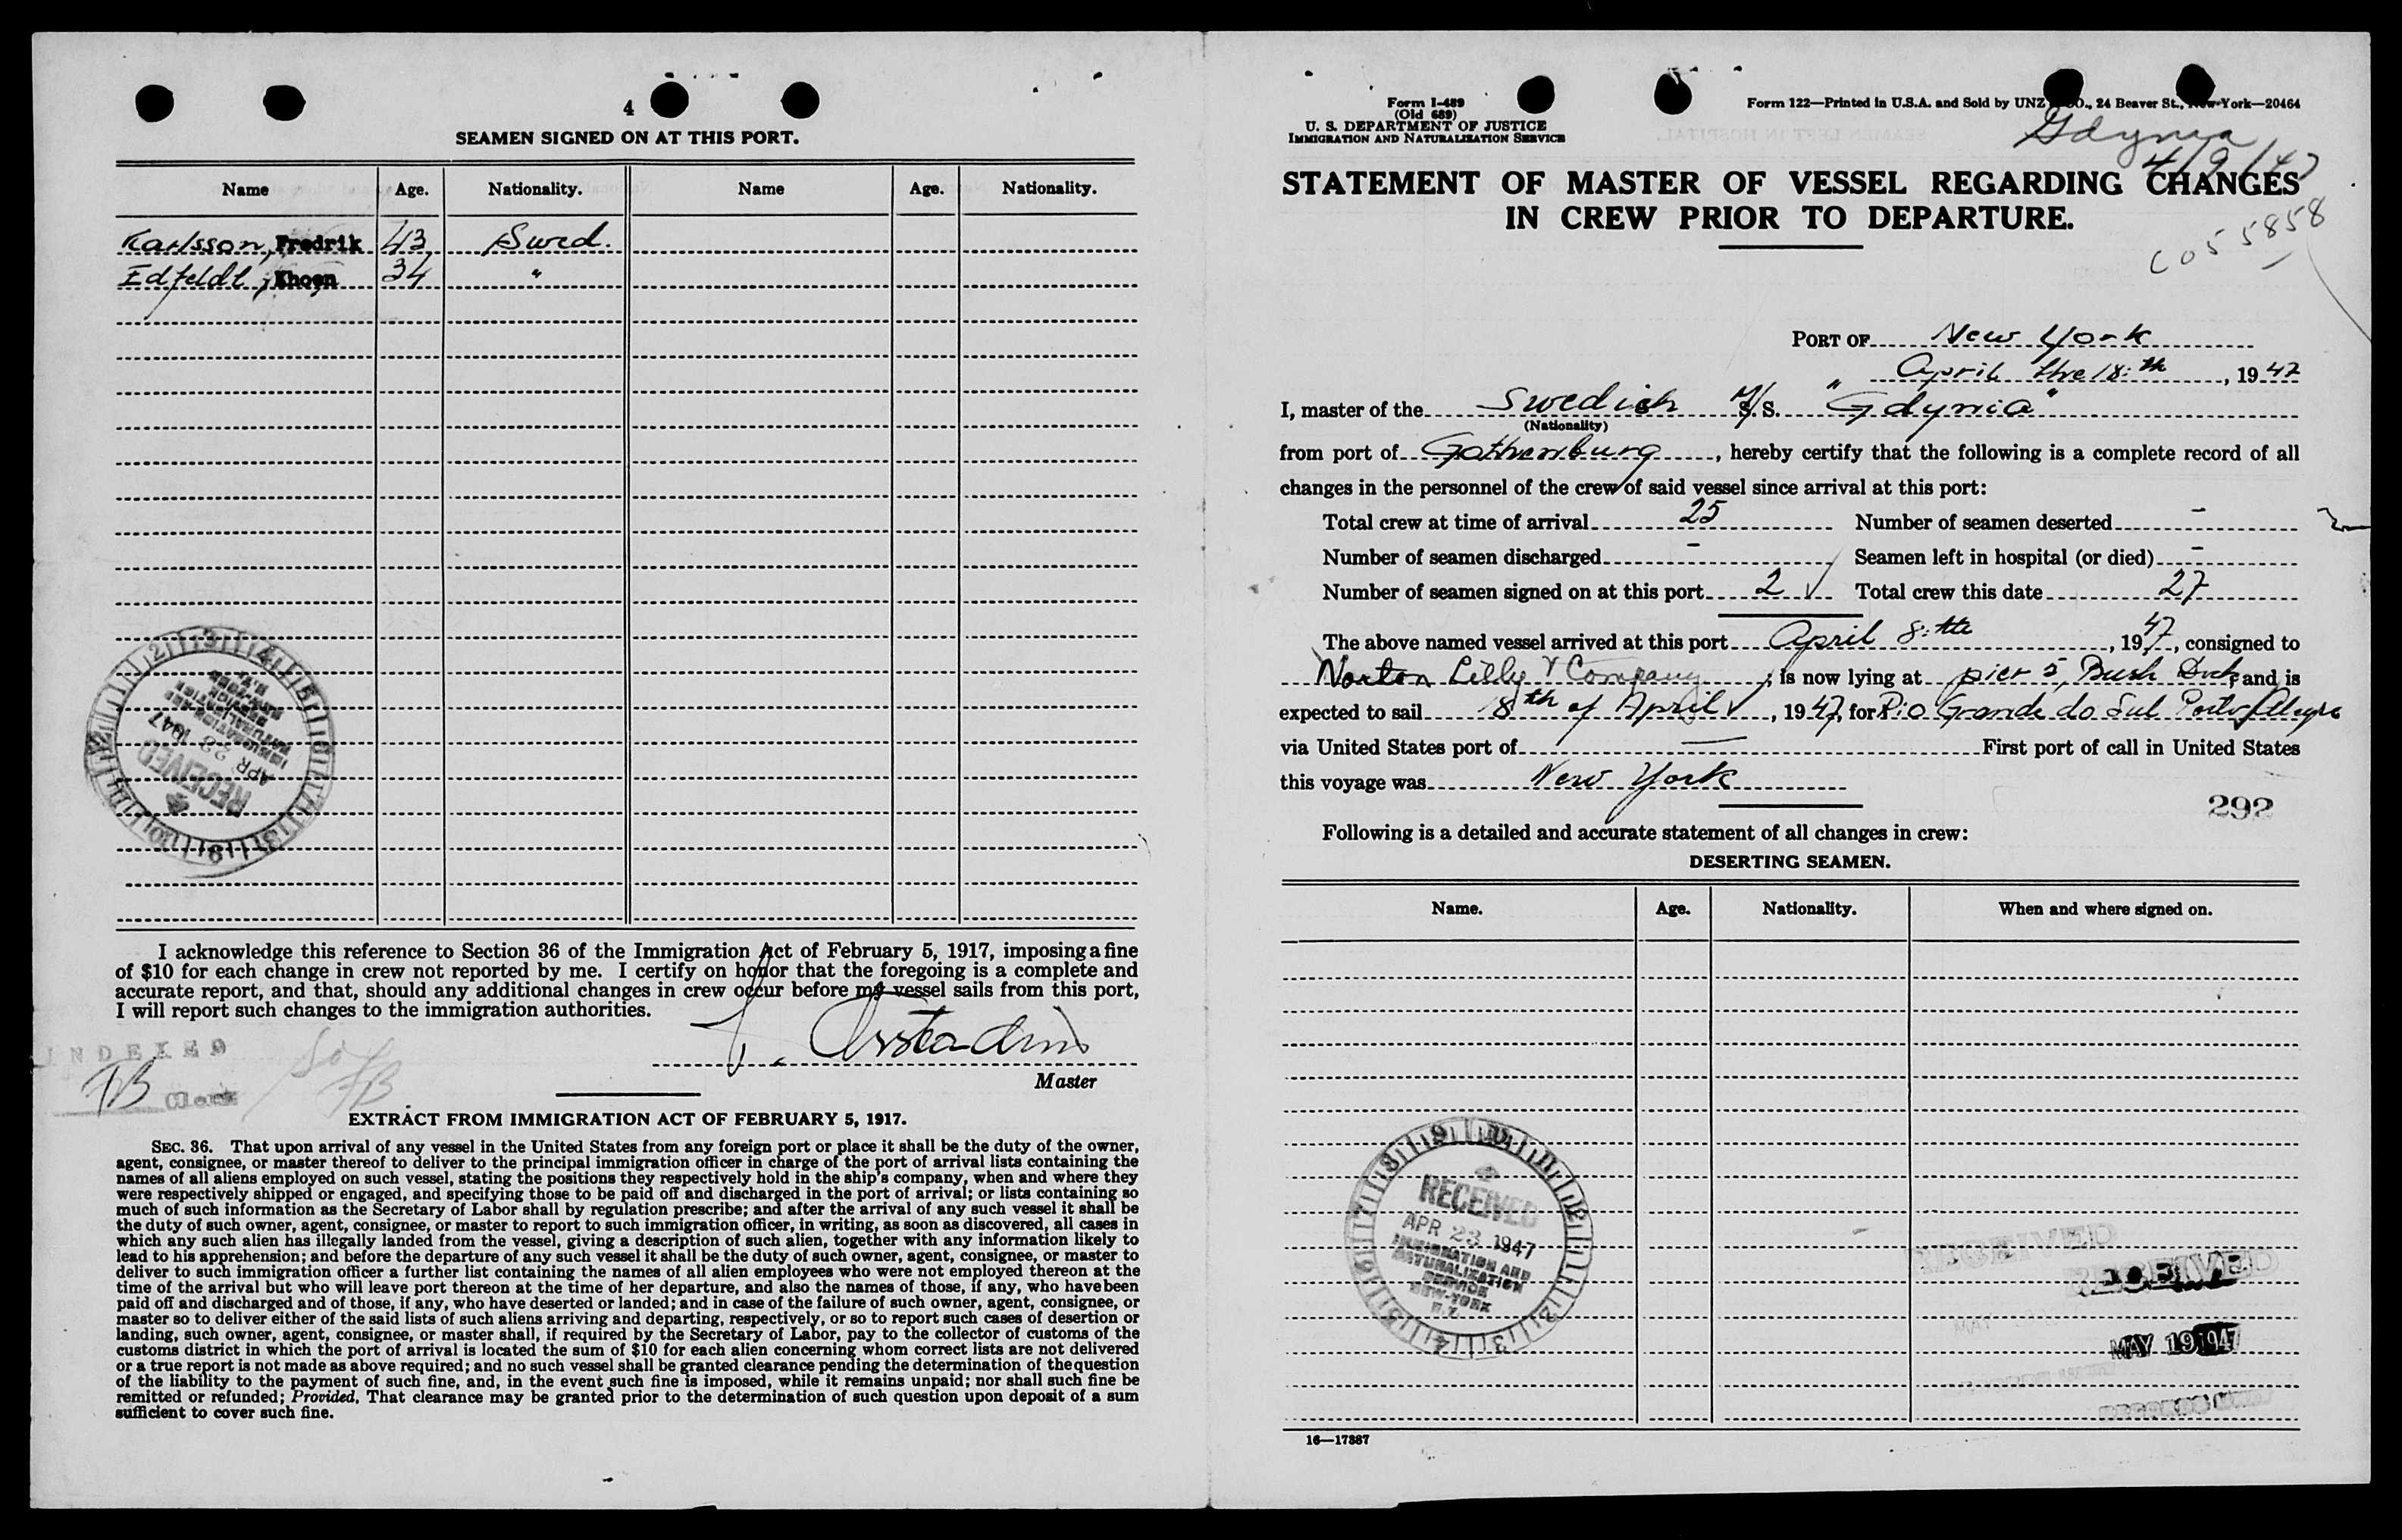 4
SEAMEN SIGNED ON AT THIS PORT.
Name Age. Nationality. Name Age. Nationality.
Karlsson, Fredrik 43 Swed.
Edfeldt, Khoen 34 "
RECEIVED
APR 23 1947
IMMIGRATION AND
NATURALIZATION
SERVICE
NEW-YORK
N.Y.
I acknowledge this reference to Section 36 of the Immigration Act of February 5, 1917, imposing a fine
of $10 for each change in crew not reported by me. I certify on honor that the foregoing is a complete and
accurate report, and that, should any additional changes in crew occur before my vessel sails from this port,
I will report such changes to the immigration authorities.
INDEXED
Clerk
Master
EXTRACT FROM IMMIGRATION ACT OF FEBRUARY 5, 1917.
SEC. 36. That upon arrival of any vessel in the United States from any foreign port or place it shall be the duty of the owner,
agent, consignee, or master thereof to deliver to the principal immigration officer in charge of the port of arrival lists containing the
names of all aliens employed on such vessel, stating the positions they respectively hold in the ship's company, when and where they
were respectively shipped or engaged, and specifying those to be paid off and discharged in the port of arrival; or lists containing so
much of such information as the Secretary of Labor shall by regulation prescribe; and after the arrival of any such vessel it shall be
the duty of such owner, agent, consignee, or master to report to such immigration officer, in writing, as soon as discovered, all cases in
which any such alien has illegally landed from the vessel, giving a description of such alien, together with any information likely to
lead to his apprehension; and before the departure of any such vessel it shall be the duty of such owner, agent, consignee, or master to
deliver to such immigration officer a further list containing the names of all alien employees who were not employed thereon at the
time of the arrival but who will leave port thereon at the time of her departure, and also the names of those, if any, who have been
paid off and discharged and of those, if any, who have deserted or landed; and in case of the failure of such owner, agent, consignee, or
master so to deliver either of the said lists of such aliens arriving and departing, respectively, or so to report such cases of desertion or
landing, such owner, agent, consignee, or master shall, if required by the Secretary of Labor, pay to the collector of customs of the
customs district in which the port of arrival is located the sum of $10 for each alien concerning whom correct lists are not delivered
or a true report is not made as above required; and no such vessel shall be granted clearance pending the determination of the question
of the liability to the payment of such fine, and, in the event such fine is imposed, while it remains unpaid; nor shall such fine be
remitted or refunded; Provided, That clearance may be granted prior to the determination of such question upon deposit of a sum
sufficient to cover such fine.
Form I-489
(Old 689)
U. S. DEPARTMENT OF JUSTICE
IMMIGRATION AND NATURALIZATION SERVICE
Form 122—Printed in U.S.A. and Sold by UNZ & CO., 24 Beaver St., New York—20464
Gdynia
4/9/47
STATEMENT OF MASTER OF VESSEL REGARDING CHANGES
IN CREW PRIOR TO DEPARTURE.
C055858
PORT OF New York
April the 18:th, 1947
I, master of the Swedish M/S. "Gdynia"
(Nationality)
from port of Gothenburg, hereby certify that the following is a complete record of all
changes in the personnel of the crew of said vessel since arrival at this port:
Total crew at time of arrival 25 Number of seamen deserted -
Number of seamen discharged - Seamen left in hospital (or died) -
Number of seamen signed on at this port 2 Total crew this date 27
The above named vessel arrived at this port April 8:th, 1947, consigned to
Norton Lilly & Company, is now lying at pier 5, Bush Dock, and is
expected to sail 18th of April, 1947, for Rio Grande do Sul Porto Alegre
via United States port of — First port of call in United States
this voyage was New York
292
Following is a detailed and accurate statement of all changes in crew:
DESERTING SEAMEN.
Name. Age. Nationality. When and where signed on.
RECEIVED
APR 23 1947
IMMIGRATION AND
NATURALIZATION
SERVICE
NEW-YORK
N.Y.
RECEIVED
RECEIVED
MAY 19 1947
16—17887